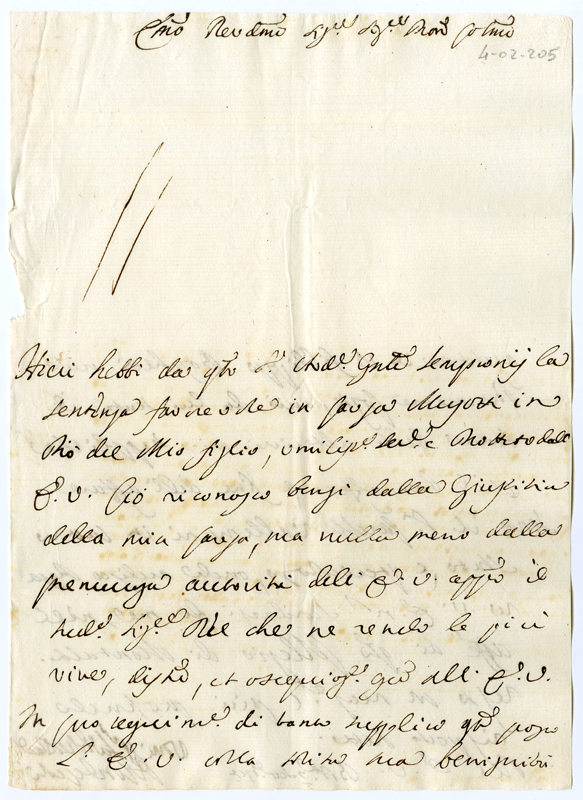 Emo Revdmo Sigre Sigre Pron Colmo
4-02-205
Hieri hebbi da qto Sr Aud.e Gnle Sempronij la
sentenza favorevole in causa Mugotti in
Prò del Mio figlio, umiliss.o Ser.e e Protto dall
E. V. Ciò riconosco bensì dalla Giustitia
della mia causa, ma nulla meno dalla
premura autorità dell E. V. appo il
sud.o Sig.re che ne rendo le più
vive, dist.e, et ossequios.e gre all E. V.
In proseguim.to di tanto supplico qto
L E. V. colla solita sua benignità